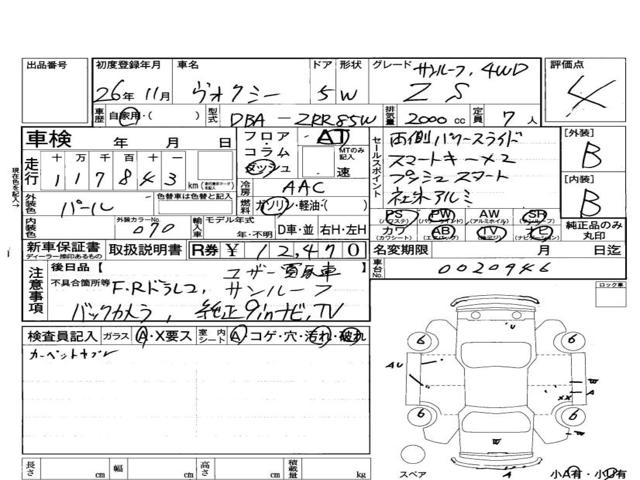 出品番号 初度登録年月 車名 ドア 形状 グレード サンルーフ、4WD 評価点
26年 11月 ヴォクシー 5 W ZS 4
車歴 自家用・( ) 型式 DBA-ZRR85W 排気量 2000 cc 定員 7 人
車検 年 月 日 フロア・コラム ダッシュ AT MTのみ記入 速
走行 十 万 千 百 十 一
117843 km
冷房 AAC
燃料 ガソリン・軽油・( )
セールスポイント 両側パワースライド
スマートキー×2
プッシュスタート
社外アルミ
[外装] B
[内装] B
現在色を記入
外装色 パール 色替車は色替と記入
内装色 外装カラーNo. 070 輸入車 モデル年式 年・不明 D車 並 右H・左H
PS PW AW SR
(パワステ) (パワーウインド) (アルミホイル) (サンルーフ)
カワ AB TV ナビ
(カワシート) (エアバッグ) (テレビ) (ナビゲーション)
純正品のみ丸印
新車保証書 取扱説明書 R券 ¥12,470 名変期限 月 日迄
ディーラー捺印あるもの
車台No. 0020946
注意事項 後日品 [ ユーザー買取車
不具合箇所等 F.Rドラレコ, サンルーフ
バックカメラ, 純正9inナビ,TV
ロック車
検査員記入 ガラス A・X要ス 室内シート A・コゲ・穴・汚れ・破れ
カーペットヨゴレ
6 6
AU
W
A
XX
6 6
W
スペア A 小A有・小U有
長さ cm 幅 cm 高さ cm 積載量 kg